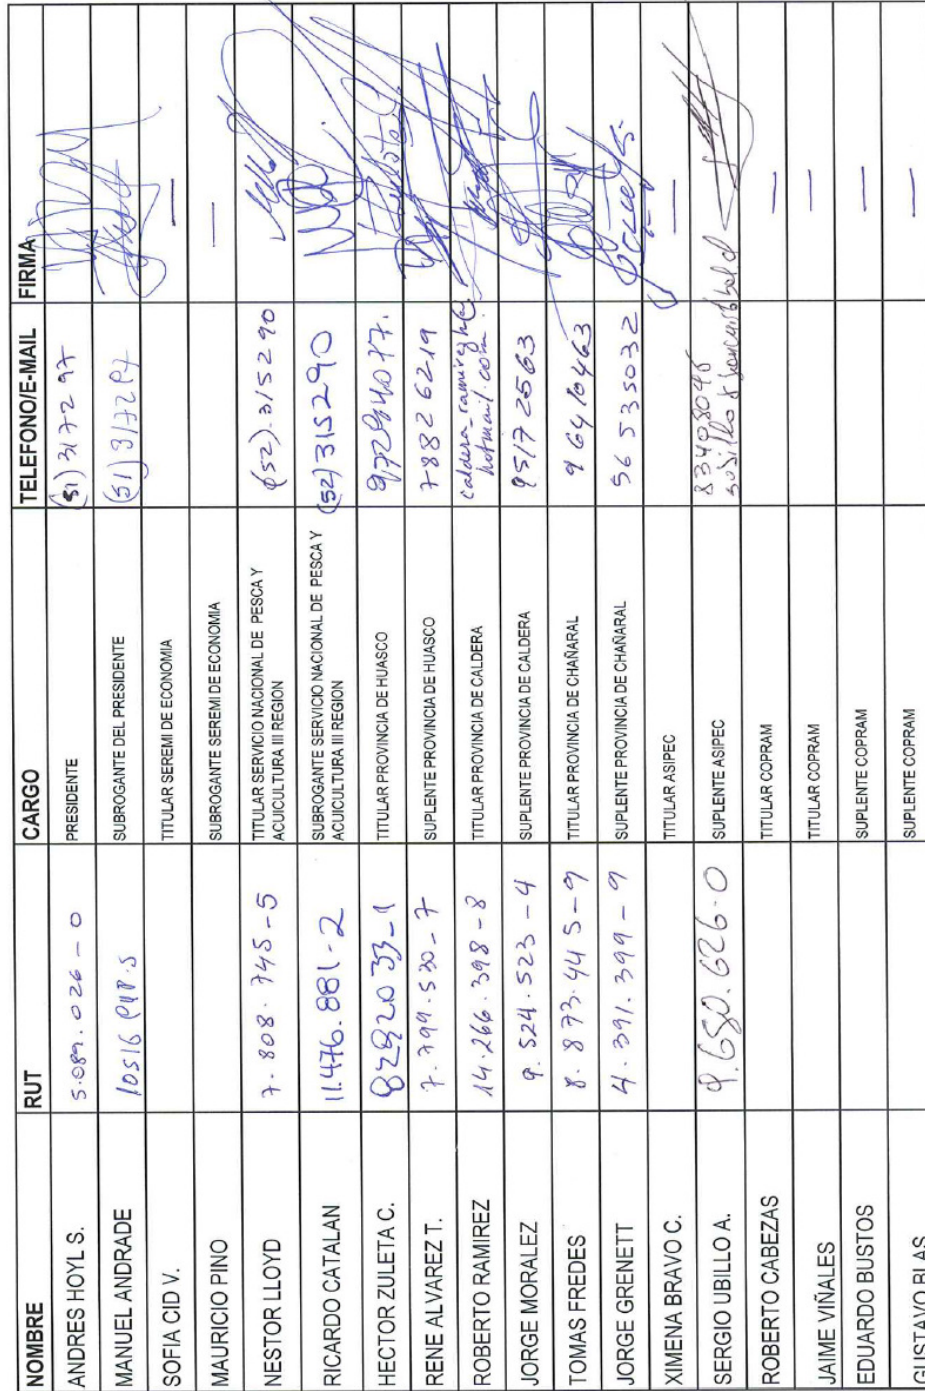 NOMBRE RUT CARGO TELEFONO/E-MAIL FIRMA
ANDRES HOYL S. 5.089.026-0 PRESIDENTE (51) 317297
MANUEL ANDRADE SUBROGANTE DEL PRESIDENTE (51) 317297
SOFIA CID V. TITULAR SEREMI DE ECONOMIA —
MAURICIO PINO SUBROGANTE SEREMI DE ECONOMIA —
NESTOR LLOYD 7.808.745-5 TITULAR SERVICIO NACIONAL DE PESCA Y
ACUICULTURA III REGION (52).315290
RICARDO CATALAN 11.476.881-2 SUBROGANTE SERVICIO NACIONAL DE PESCA Y
ACUICULTURA III REGION (52) 315290
HECTOR ZULETA C. TITULAR PROVINCIA DE HUASCO
RENE ALVAREZ T. 7.799.530-7 SUPLENTE PROVINCIA DE HUASCO 78826219
ROBERTO RAMIREZ 14.266.398-8 TITULAR PROVINCIA DE CALDERA caldera_ramirez
hotmail.com
JORGE MORALEZ 9.524.523-4 SUPLENTE PROVINCIA DE CALDERA 95172563
TOMAS FREDES 8.873.445-9 TITULAR PROVINCIA DE CHAÑARAL 96410463
JORGE GRENETT 4.391.399-9 SUPLENTE PROVINCIA DE CHAÑARAL 56535032
XIMENA BRAVO C. TITULAR ASIPEC —
SERGIO UBILLO A. 9.650.626-0 SUPLENTE ASIPEC 83408045
ROBERTO CABEZAS TITULAR COPRAM —
JAIME VIÑALES TITULAR COPRAM —
EDUARDO BUSTOS SUPLENTE COPRAM —
GUSTAVO BLAS SUPLENTE COPRAM —